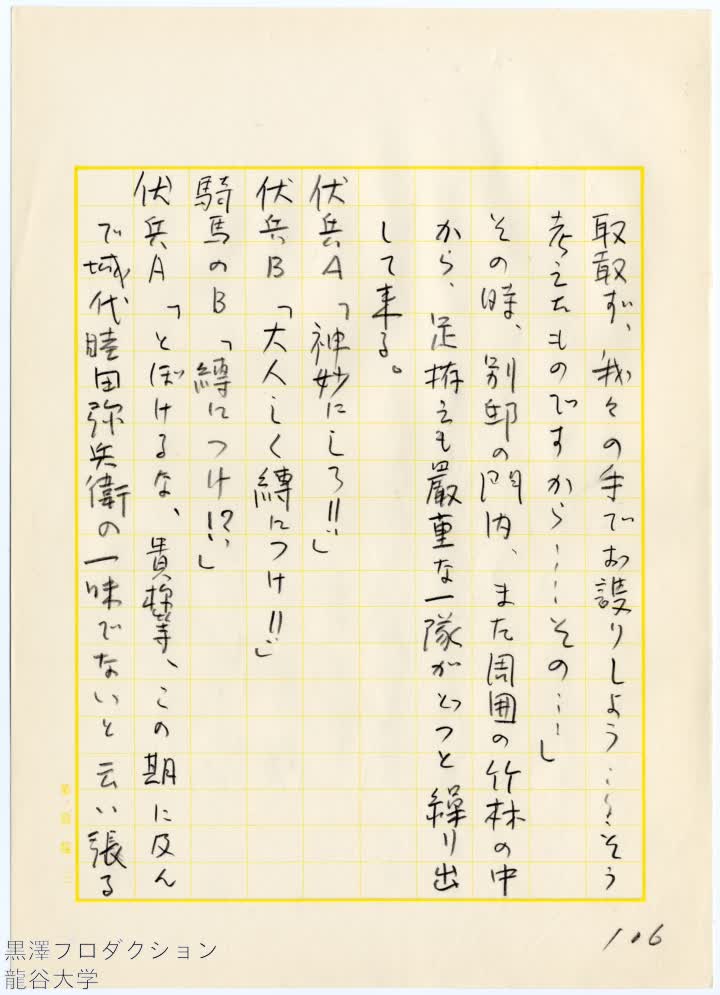 取敢ず、我々の手でお護りしよう……そう
考えたものですから……その……」
その時、別邸の門内、また周囲の竹林の中
から、足拵えも厳重な一隊がどっと繰り出
して来る。
伏兵A「神妙にしろ!!」
伏兵B「大人しく縛につけ!!」
騎馬のB「縛につけ!?」
伏兵A「とぼけるな、貴様等、この期に及ん
で城代睦田弥兵衛の一味でないと云い張る
106
黒澤プロダクション
龍谷大学